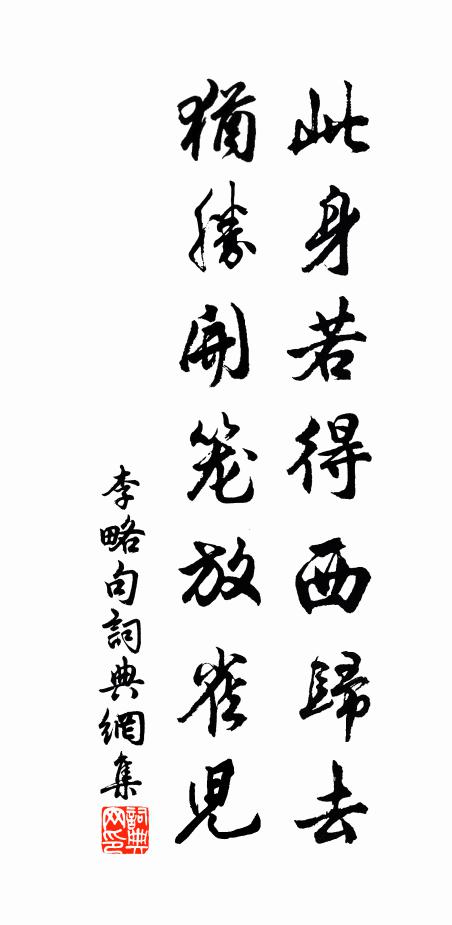 此身若得西歸去
猶勝開笼放雀兒
李略句詞典網集
詞典网印